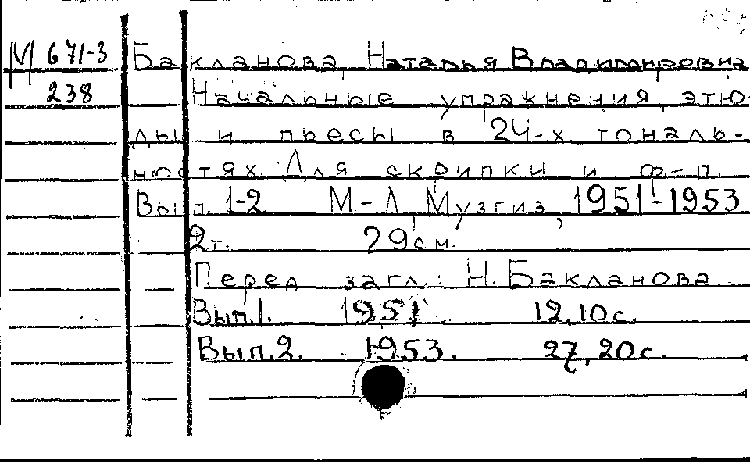 М 671-3
238
Бакланова, Наталья Владимировна
Начальные упражнения, этю-
ды и пьесы в 24-х тональ-
ностях. Для скрипки и ф-п.
Вып. 1-2. М-Л, Музгиз, 1951-1953
2т. 29см.
Перед загл.: Н. Бакланова.
Вып.1. 1951. 12,10с.
Вып.2. 1953. 27,20с.